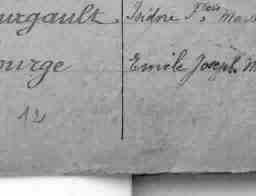 urgault Isidore Fois Mar
ourge Emile Joseph M
12